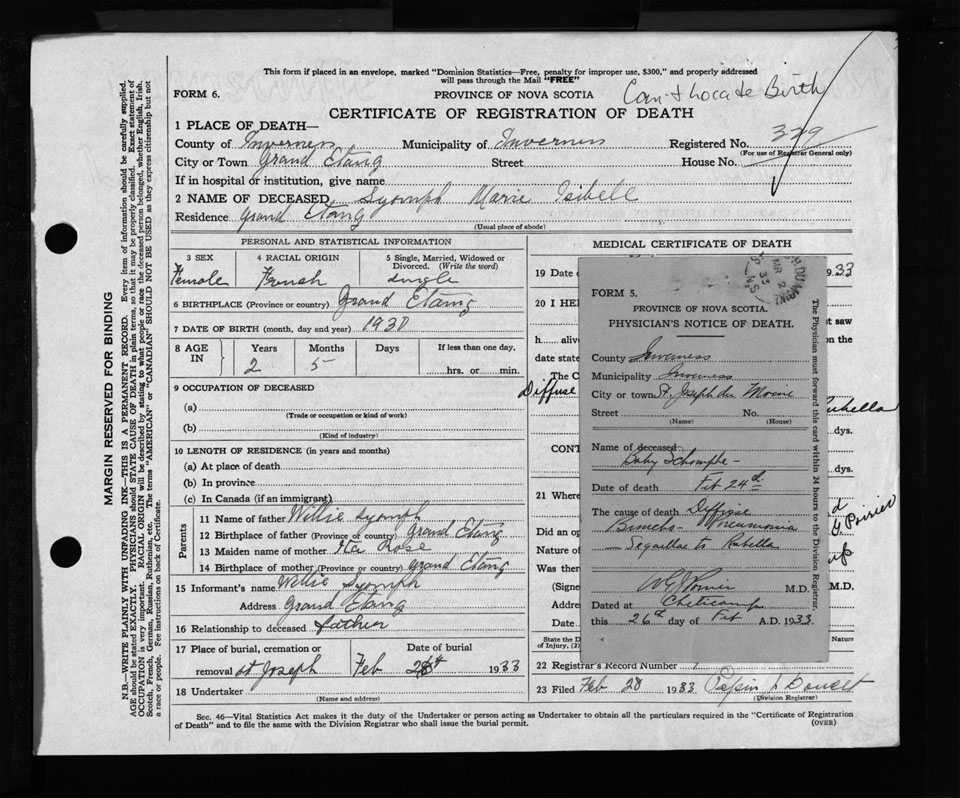 This form if placed in an envelope, marked "Dominion Statistics—Free, penalty for improper use, $300," and properly addressed
will pass through the Mail "FREE"
FORM 6.
PROVINCE OF NOVA SCOTIA
Can't Locate Birth
CERTIFICATE OF REGISTRATION OF DEATH
1 PLACE OF DEATH—
County of Inverness Municipality of Inverness Registered No. 329
(For use of Registrar General only)
City or Town Grand Etang Street House No.
If in hospital or institution, give name
2 NAME OF DECEASED Syomph Marie Isibell
Residence Grand Etang
(Usual place of abode)
PERSONAL AND STATISTICAL INFORMATION
3 SEX
Female
4 RACIAL ORIGIN
French
5 Single, Married, Widowed or
Divorced. (Write the word)
single
6 BIRTHPLACE (Province or country) Grand Etang
7 DATE OF BIRTH (month, day and year) 1930
8 AGE
IN
Years Months Days If less than one day,
2 5 hrs. or min.
9 OCCUPATION OF DECEASED
(a)
(Trade or occupation or kind of work)
(b)
(Kind of industry)
10 LENGTH OF RESIDENCE (in years and months)
(a) At place of death
(b) In province
(c) In Canada (if an immigrant)
Parents
11 Name of father Willie Syomph
12 Birthplace of father (Province or country) Grand Etang
13 Maiden name of mother Rose
14 Birthplace of mother (Province or country) Grand Etang
15 Informant's name Willie Syomph
Address Grand Etang
16 Relationship to deceased father
17 Place of burial, cremation or
removal St Joseph
Date of burial
Feb 1933
18 Undertaker
(Name and address)
MEDICAL CERTIFICATE OF DEATH
19 Date 33
20 I HE
st saw
h.... alive on the
date state
The C
Diffuse
Rubella
dys.
CONT
dys.
21 Where
Did an op G Poirier
Nature of
Was ther
(Signe M.D.
Addre
Date
State the D Nature
of Injury, (2)
22 Registrar's Record Number
23 Filed Feb 28 1933
(Division Registrar)
FORM 5.
PROVINCE OF NOVA SCOTIA.
PHYSICIAN'S NOTICE OF DEATH.
County Inverness
Municipality Inverness
City or town St. Joseph du Moine
Street No.
(Name) (House)
Name of deceased
Baby Schomphe
Date of death Feb 24th
The cause of death Diffuse
Broncho-Pneumonia
Sequellae to Rubella
M.D.
Dated at Cheticamp
this 26th day of Feb A.D. 1933
The Physician must forward this card within 24 hours to the Division Registrar.
Sec. 46—Vital Statistics Act makes it the duty of the Undertaker or person acting as Undertaker to obtain all the particulars required in the "Certificate of Registration
of Death" and to file the same with the Division Registrar who shall issue the burial permit.
(OVER)
MARGIN RESERVED FOR BINDING
N.B.—WRITE PLAINLY WITH UNFADING INK—THIS IS A PERMANENT RECORD. Every item of information should be carefully supplied.
AGE should be stated EXACTLY. PHYSICIANS should STATE CAUSE OF DEATH in plain terms, so that it may be properly classified. Exact statement of
OCCUPATION is very important. RACIAL ORIGIN will be described by stating to what people or race the deceased person belonged, whether English, Irish,
Scotch, French, German, Russian, Ruthenian, etc. The terms "AMERICAN" or "CANADIAN" SHOULD NOT BE USED as they express citizenship but not
a race or people. Fee instructions on back of Certificate.